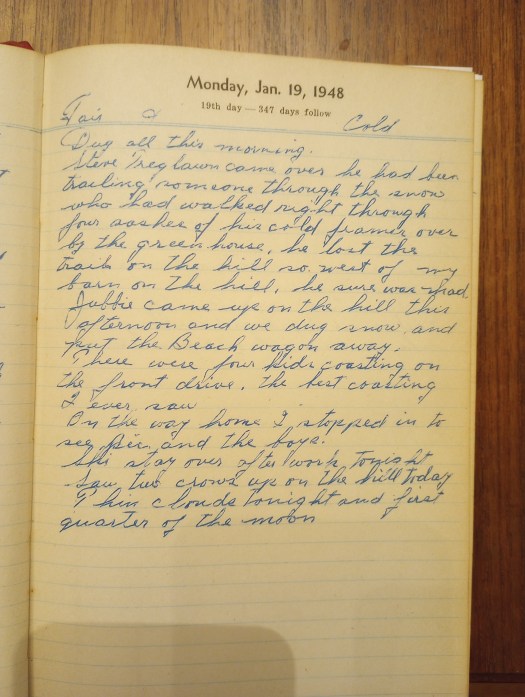 Monday, Jan. 19, 1948
19th day — 347 days follow
Fair & Cold
Dug all this morning.
Steve came over he had been
trailing someone through the snow
who had walked right through
four sashes of his cold frames over
by the greenhouse, he lost the
trail on the hill so. west of my
barn on the hill, he sure was mad
came up on the hill this
afternoon and we dug snow and
put the Beach wagon away.
There were four kids coasting on
the front drive. the best coasting
I ever saw
On the way home I stopped in to
see and the boys.
She stay over after work tonight
Saw two crows up on the hill today
Thin clouds tonight and first
quarter of the moon